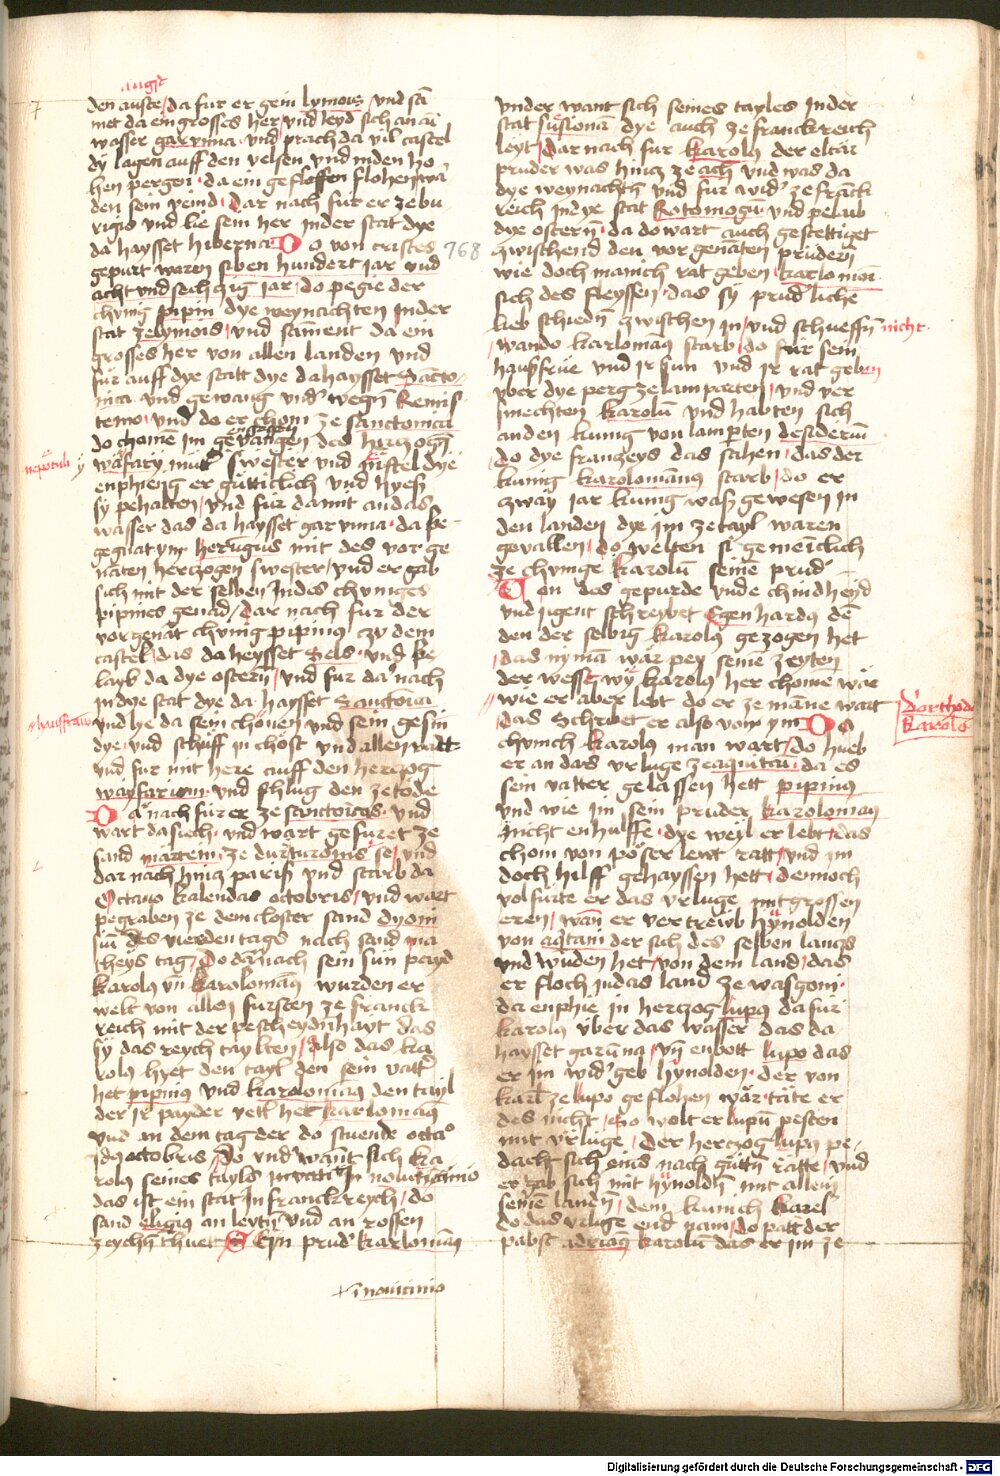 augst
den auste / da fur er gein lymous / und sā
met da ein grosses her / und leyd sich an dā
wasser garunna · und prach da vil castel
dy lagen auff den velsen / und in den ho
hen pergen · da ein geslossen flohen wā
den sein veind / Dar nach fur er ze bu
rigio und lie sein her in der stat dye
da haysset hiberna Do von cristes 768
gepurt waren siben hundert iar und
acht und sechczig iar / do pegie der
chving pipin dye weynachten in der
stat zelymois / und sament da ein
grosses her von allen landen und
fur auff dye statt dye da haysset Sācto
nica und gewang und wegn Remis
temo / und do er chom ze sanctonica
do chome im gevangen des herczogn
wafary mutt swester und nistel dye
enphieng er gutticlich und hyess
sy pehalten / und fur da mit an das
wasser das da haysset garunna · da be
gegnat ym herūgus mit des vor ge
nāten herczogen swester / und er gab
sich mit der selben in des chuniges
pipines genad / Dar nach fur der
vorgenāt chving pipinus czu dem
castel / das da heysset Sels · und be
layb da dye ostern / und fur da nach
in dye stat dye da haysset Sanctōnia
und lye da sein chonen und sein gesin
dye / und schuff in chost und allen ratt
und fur mit here auff den herczog
wayfarium · und schlug den ze tode
Da nach fur er ze sanctonicas · und
wart da siech · und wart gefuret ze
sand martein · ze durturonis se / und
dar nach hincz paris und starb da
Octavo kalendas octobris / und wart
pegraben ze dem closter sand dyoni
sii des vierden tags nach sand ma
theys tag / Do darnach sein sun payd
karolus un karolomānus wurden er
welt von allen fursten ze franck
reich mit der pescheydnhayt das
sy das reych taylten / Also das ka
rolus hyet den tayl den sein vatter
het pipinus und karolomānus den tayl
der ir payder vetter het karlomānus
und an dem tag der do stuend octao
Idus octobris / Do und want sich ka
rolus seines tayls in
das ist ein stat in franckreych / do
sand eligius an leytn und an rossen
zeychn thuet Sein pruder karlomānus
nepotula
hausfraw
+ in novicinio
under want sich seines tayles in der
stat susionā dye auch ze franckreich
leyt / Dar nach fur karolus der eltar
pruder was hincz ze ach und was da
dye weynachtn und fur wider ze frāck
reich in dye stat Rotomogū · und pelaib
dye ostern · da do wart auch gestettiget
zwischend den vor genāten prudern
wie doch manich rat geben / karlo mōn
sich des fleyssen · das sy pruderliche
lieb schiedn zwischen in / und schueffn nicht ·
wan do karlomānus starb / do fur sein
hausfrue und ir sun und ir rat geben
uber dye perg ze lamparten / und ver
smechten karolū und habten sich
an den kunig von lamparten desideriū
do dye franczeys das sahen · das der
kunig karolomānus starb / do er
zway iar kunig was gewesen in
den landen dye im ze tayl waren
gevallen / do welten si gemeīclich
ze chunige karolū seinē pruder
Von des gepurde unde chindhend
und iugent schreybet Egenhardus dē
den der selbig karolus gezogen het
das nymā wār pey seinē zeyten
der wesst wy karolus her chome wār
wie er aber lebt do er ze māne wart
das Schribet er also von ym Do
chunich karolus man wart / do hueb
er an das urluge ze aquitā · da es
sein vatter gelassen hett pipinus
und wie im sein pruder karolomanus
nicht en hulffe · dye weyl er lebt · das
chom von poser lewt ratt / und im
doch hilff gehayssen hett / dennoch
volfurte er das urluge mit grossen
eren / wān er vertreib hynolden
von aqtani der sich des selben lancz
und wuden het / von dem land / das
er floch in das land ze wasgoni ·
da enphie in herczog lupus da fur
karolus uber das wasser das da
haysset garūna / un enbott lupo das
er im wider geb hynolden · der von
karl ze lupo geflohen wār · tāte er
des nicht / So wolt er lupū pesten
mit urluge / der herczog lupus pe
dacht sich eins nach guttn ratte / und
er gab sich mit hynoldn mit allen
seinē landn / dem kunich karel
do das urluge end nam / do patt der
pabst adrianus karolū das er im ze
D'orthodo
Karolo
Digitalisierung gefördert durch die Deutsche Forschungsgemeinschaft - DFG